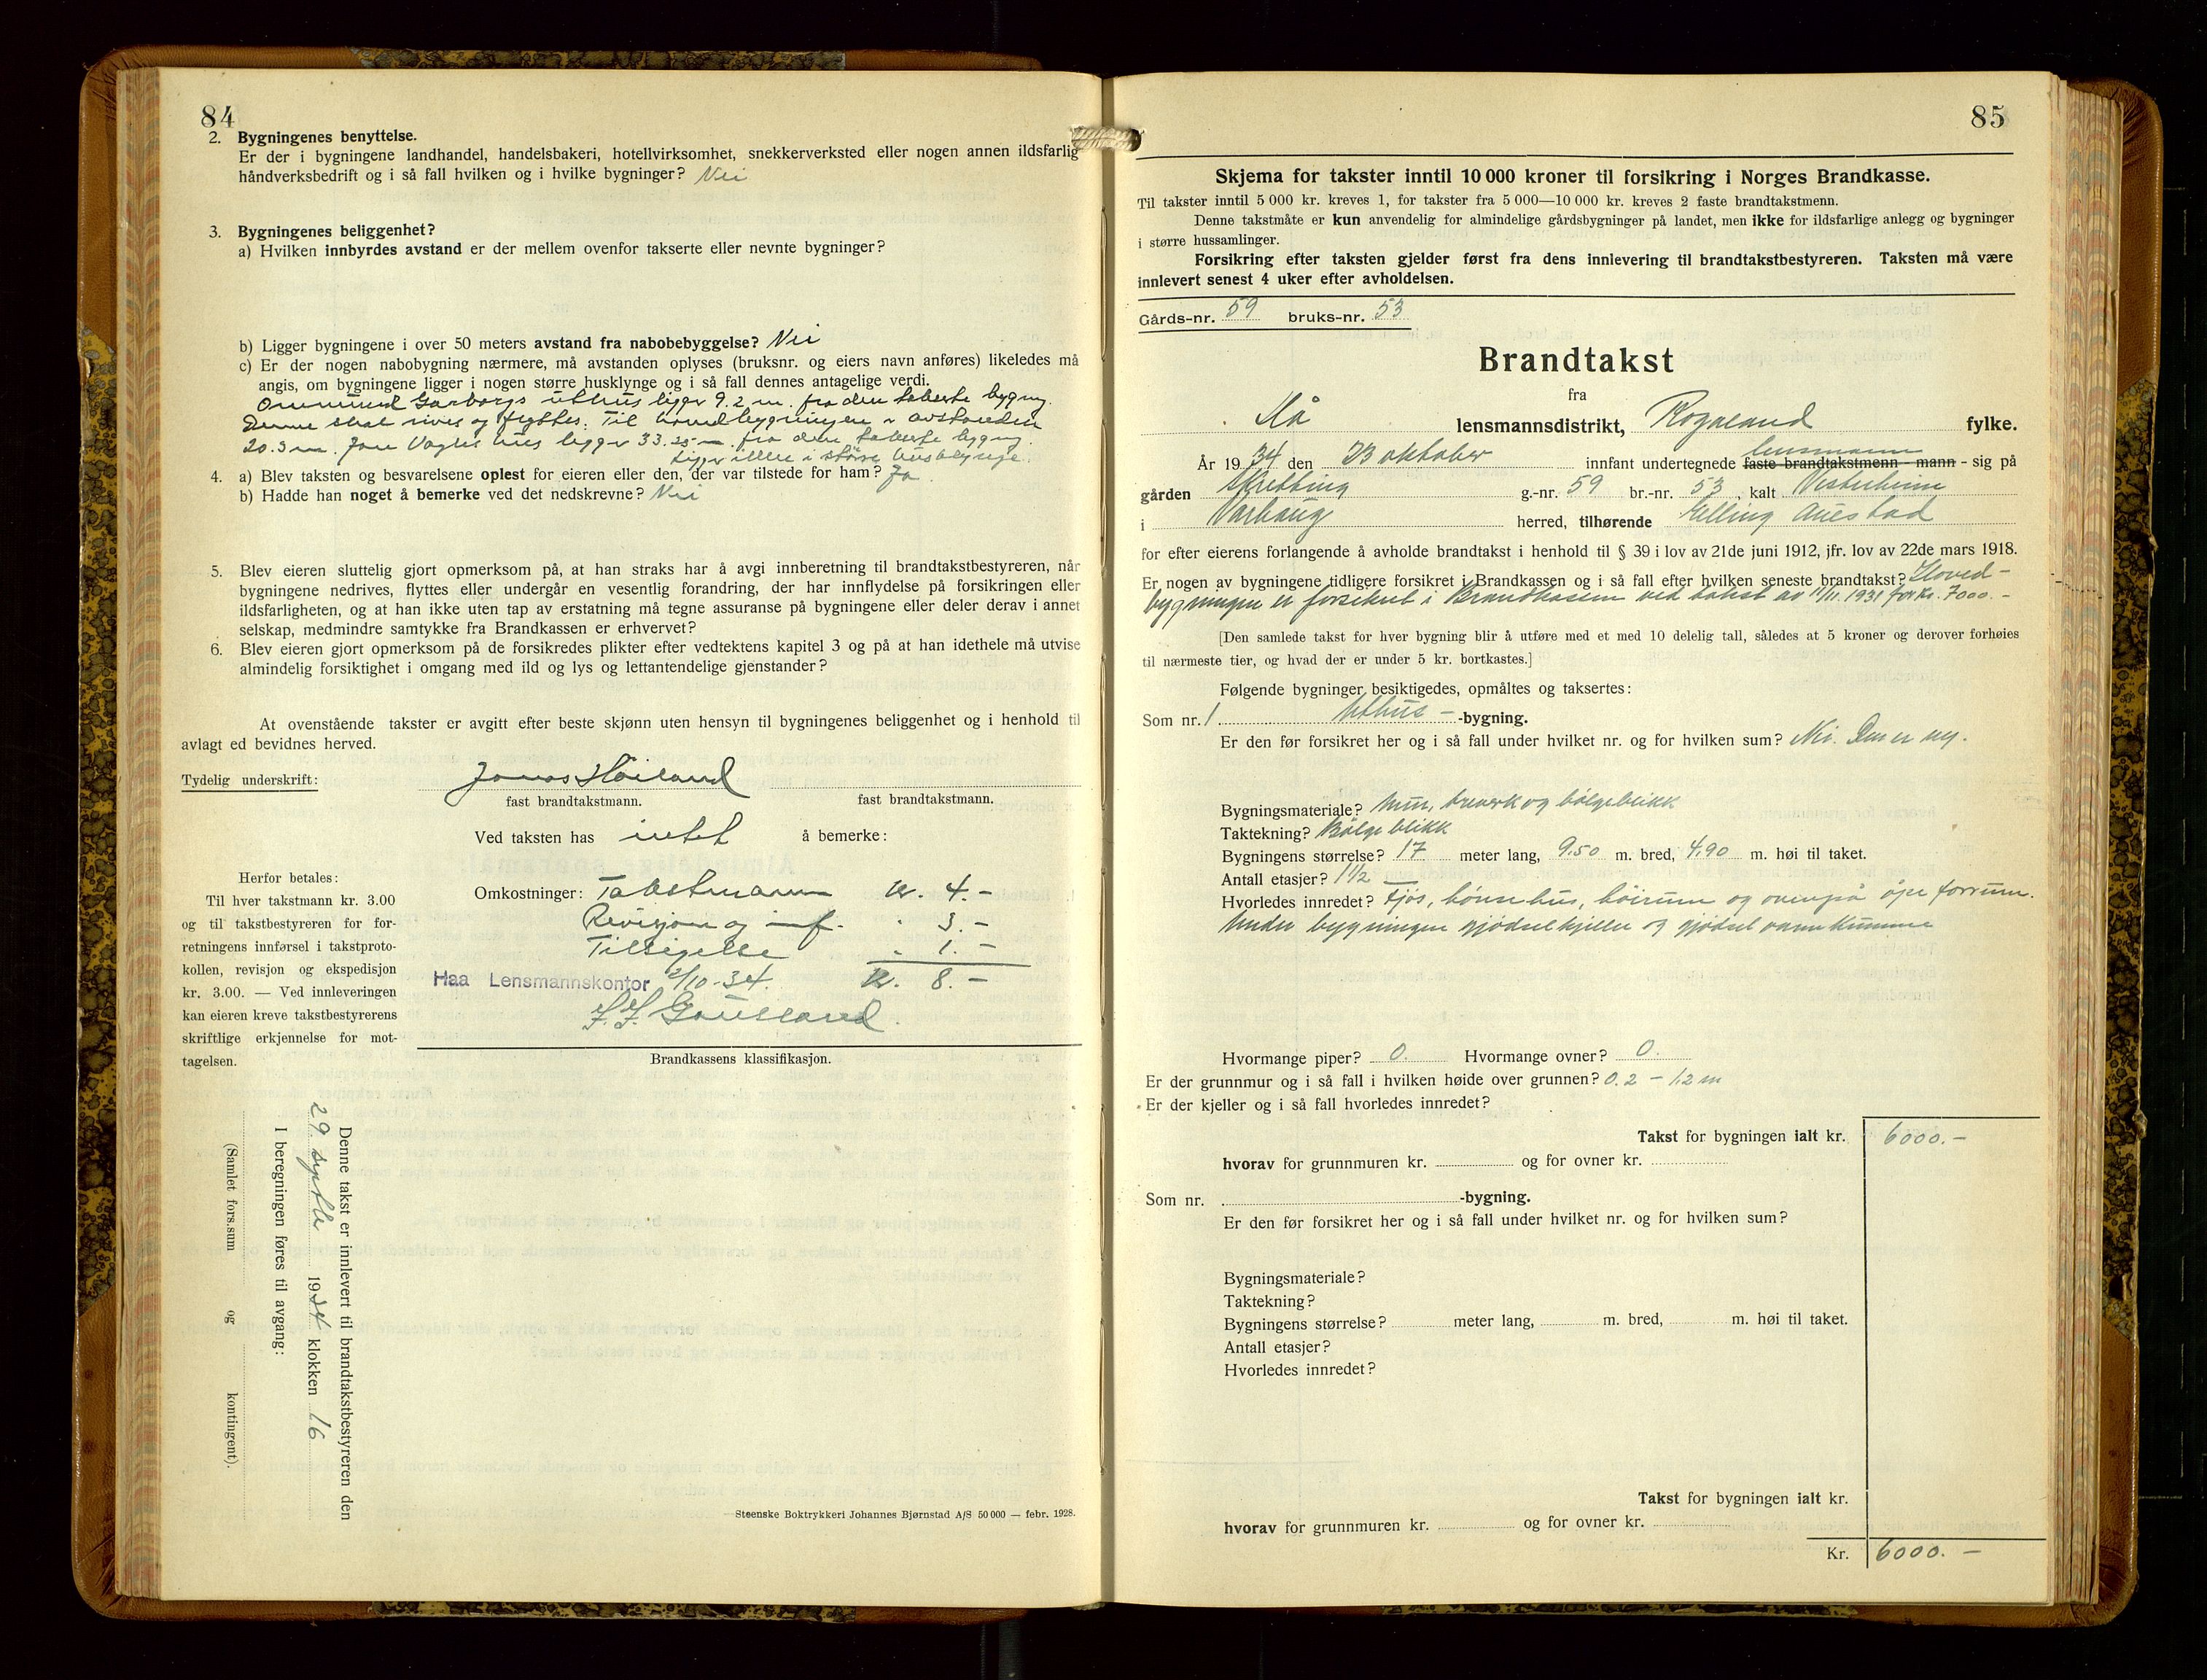 84
2. Bygningenes benyttelse.
Er der i bygningene landhandel, handelsbakeri, hotellvirksomhet, snekkerverksted eller nogen annen ildsfarlig
håndverksbedrift og i så fall hvilken og i hvilke bygninger? Nei
3. Bygningenes beliggenhet?
a) Hvilken innbyrdes avstand er der mellem ovenfor takserte eller nevnte bygninger?
b) Ligger bygningene i over 50 meters avstand fra nabobebyggelse? Nei
c) Er der nogen nabobygning nærmere, må avstanden oplyses (bruksnr. og eiers navn anføres) likeledes må
angis, om bygningene ligger i nogen større husklynge og i så fall dennes antagelige verdi.
Ommund Garborgs uthus ligger 9.2 m. fra den takserte bygning.
Denne skal rives og flyttes. Til hovedbygningen er avstanden
20.3 m. Jone Vagles hus ligger 33.25 m. fra den takserte bygning.
Ligger ikke i større husklynge.
4. a) Blev taksten og besvarelsene oplest for eieren eller den, der var tilstede for ham? Ja.
b) Hadde han noget å bemerke ved det nedskrevne? Nei
5. Blev eieren sluttelig gjort opmerksom på, at han straks har å avgi innberetning til brandtakstbestyreren, når
bygningene nedrives, flyttes eller undergår en vesentlig forandring, der har innflydelse på forsikringen eller
ildsfarligheten, og at han ikke uten tap av erstatning må tegne assuranse på bygningene eller deler derav i annet
selskap, medmindre samtykke fra Brandkassen er erhvervet?
6. Blev eieren gjort opmerksom på de forsikredes plikter efter vedtektens kapitel 3 og på at han idethele må utvise
almindelig forsiktighet i omgang med ild og lys og lettantendelige gjenstander?
At ovenstående takster er avgitt efter beste skjønn uten hensyn til bygningenes beliggenhet og i henhold til
avlagt ed bevidnes herved.
Tydelig underskrift: Jonas Høiland
fast brandtakstmann. fast brandtakstmann.
Ved taksten has intet å bemerke:
Herfor betales:
Til hver takstmann kr. 3.00
og til takstbestyreren for for-
retningens innførsel i takstproto-
kollen, revisjon og ekspedisjon
kr. 3.00. — Ved innleveringen
kan eieren kreve takstbestyrerens
skriftlige erkjennelse for mot-
tagelsen.
Omkostninger: Takstmann kr. 4.-
Revisjon og inf. " 3.-
Tilsigelse " 1.-
Haa Lensmannskontor 2/10-34. kr. 8.-
Brandkassens klassifikasjon.
Denne takst er innlevert til brandtakstbestyreren den
29 septbr 1934 klokken 16
I beregningen føres til avgang:
(Samlet fors.sum og kontingent).
Steenske Boktrykkeri Johannes Bjørnstad A/S 50 000 — febr. 1928.
85
Skjema for takster inntil 10 000 kroner til forsikring i Norges Brandkasse.
Til takster inntil 5 000 kr. kreves 1, for takster fra 5 000—10 000 kr. kreves 2 faste brandtakstmenn.
Denne takstmåte er kun anvendelig for almindelige gårdsbygninger på landet, men ikke for ildsfarlige anlegg og bygninger
i større hussamlinger.
Forsikring efter taksten gjelder først fra dens innlevering til brandtakstbestyreren. Taksten må være
innlevert senest 4 uker efter avholdelsen.
Gårds-nr. 59 bruks-nr. 53
Brandtakst
fra
Hå lensmannsdistrikt, Rogaland fylke.
lensmann
År 1934 den 23 oktober innfant undertegnede faste brandtakstmenn - mann - sig på
gården Skretting g.-nr. 59 br.-nr. 53, kalt Vesterheim
i Varhaug herred, tilhørende Elling Auestad
for efter eierens forlangende å avholde brandtakst i henhold til § 39 i lov av 21de juni 1912, jfr. lov av 22de mars 1918.
Er nogen av bygningene tidligere forsikret i Brandkassen og i så fall efter hvilken seneste brandtakst? Hoved-
bygningen er forsikret i Brandkassen ved takst av 11/11. 1931 for kr. 7000.-
[Den samlede takst for hver bygning blir å utføre med et med 10 delelig tall, således at 5 kroner og derover forhøies
til nærmeste tier, og hvad der er under 5 kr. bortkastes.]
Følgende bygninger besiktigedes, opmåltes og taksertes:
Som nr. 1 Uthus- -bygning.
Er den før forsikret her og i så fall under hvilket nr. og for hvilken sum? Nei. Den er ny.
Bygningsmateriale? Mur, treverk og bølgeblikk
Taktekning? Bølgeblikk
Bygningens størrelse? 17 meter lang, 9.50 m. bred, 4.90 m. høi til taket.
Antall etasjer? 1½
Hvorledes innredet? Fjøs, hønsehus, høirum og ovenpå åpe forrum.
Under bygningen gjødselkjeller og gjødselvannkumme
Hvormange piper? 0. Hvormange ovner? 0.
Er der grunnmur og i så fall i hvilken høide over grunnen? 0.2 - 1.2 m
Er der kjeller og i så fall hvorledes innredet?
Takst for bygningen ialt kr. 6000.-
hvorav for grunnmuren kr. og for ovner kr.
Som nr. -bygning.
Er den før forsikret her og i så fall under hvilket nr. og for hvilken sum?
Bygningsmateriale?
Taktekning?
Bygningens størrelse? meter lang, m. bred, m. høi til taket.
Antall etasjer?
Hvorledes innredet?
Takst for bygningen ialt kr.
hvorav for grunnmuren kr. og for ovner kr.
Kr. 6000.-